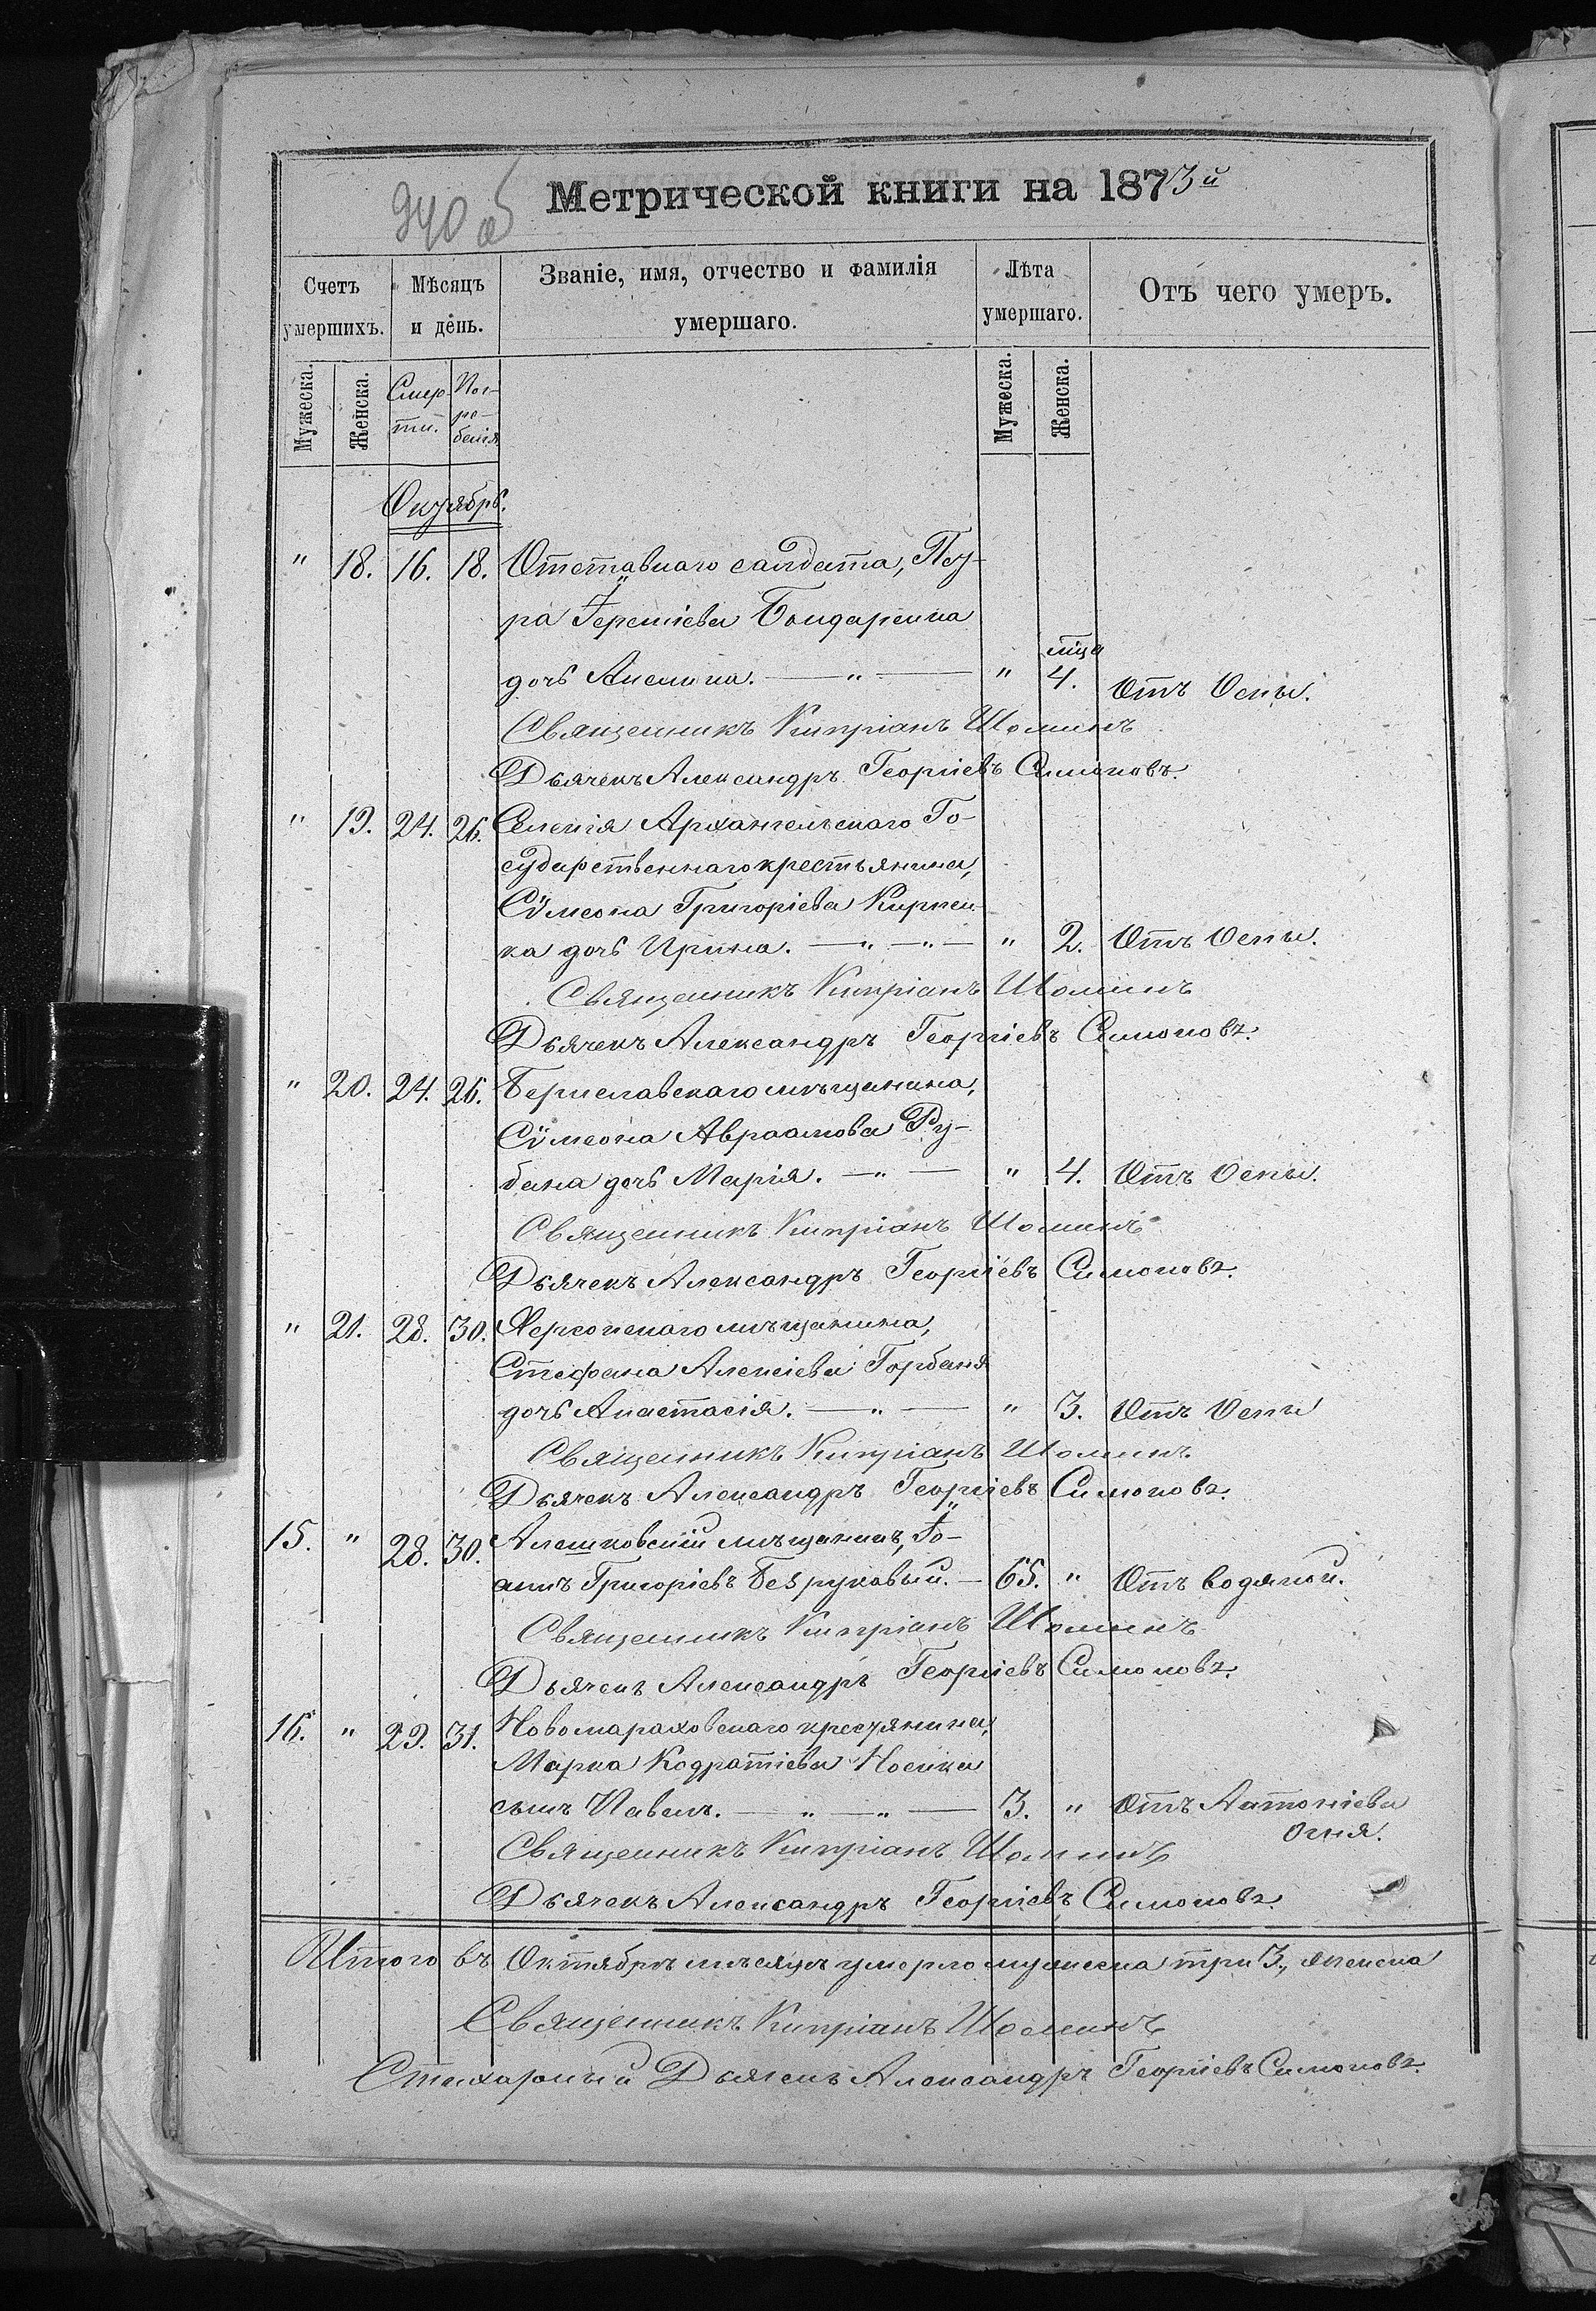 940 об
Метрической книги на 1873й
Счетъ умершихъ.
Мѣсяцъ и день.
Званіе, имя, отчество и фамилія умершаго.
Лѣта умершаго.
Отъ чего умеръ.
Мужеска. Женска. Смерти. Погребенія Мужеска. Женска.
Октябрь.
" 18. 16. 18. Отставнаго салдата, Пет-
ра Іереміева Бондаренка
мѣца
дочь Аксинiа. — " — " 4. Отъ Оспы.
Священникъ Кипріанъ Шоминъ
Дьячекъ Александръ Георгіевъ Симоновъ.
" 19. 24. 26. Селенія Архангельскаго Го-
сударственнаго крестьянина,
Сѵмеона Григоріева Кирпен
ка дочь Ирина. — " — " — " 2. Отъ Оспы.
Священникъ Кипріанъ Шоминъ
Дьячекъ Александръ Георгіевъ Симоновъ.
" 20. 24. 26. Бериславскаго мѣщанина,
Сѵмеона Авраамова Ру-
бана дочь Марія. — " — " 4. Отъ Оспы.
Священникъ Кипріанъ Шоминъ
Дьячекъ Александръ Георгіевъ Симоновъ.
" 21. 28. 30. Херсонскаго мѣщанина,
Стефана Алексіева Горбаня
дочь Анастасія. — " — " 3. Отъ Оспы
Священникъ Кипріанъ Шоминъ
Дьячекъ Александръ Георгіевъ Симоновъ.
15. " 28. 30. Алешковскій мѣщанинъ, Іо-
аннъ Григоріевъ Безруковый. — 65. " Отъ водяной.
Священникъ Кипріанъ Шоминъ
Дьячекъ Александръ Георгіевъ Симоновъ.
16. " 29. 31. Новомараховскаго крестянина,
Марка Кодратіева Носика
сынъ Павелъ. — " — " — 3. " Отъ Антоніева
Огня.
Священникъ Кипріанъ Шоминъ
Дьячекъ Александръ Георгіевъ Симоновъ.
Итого въ Октябрѣ мѣсяцѣ умерло мужеска три 3., женска
Священникъ Кипріанъ Шоминъ
Стихарный Дьячекъ Александръ Георгіевъ Симоновъ.